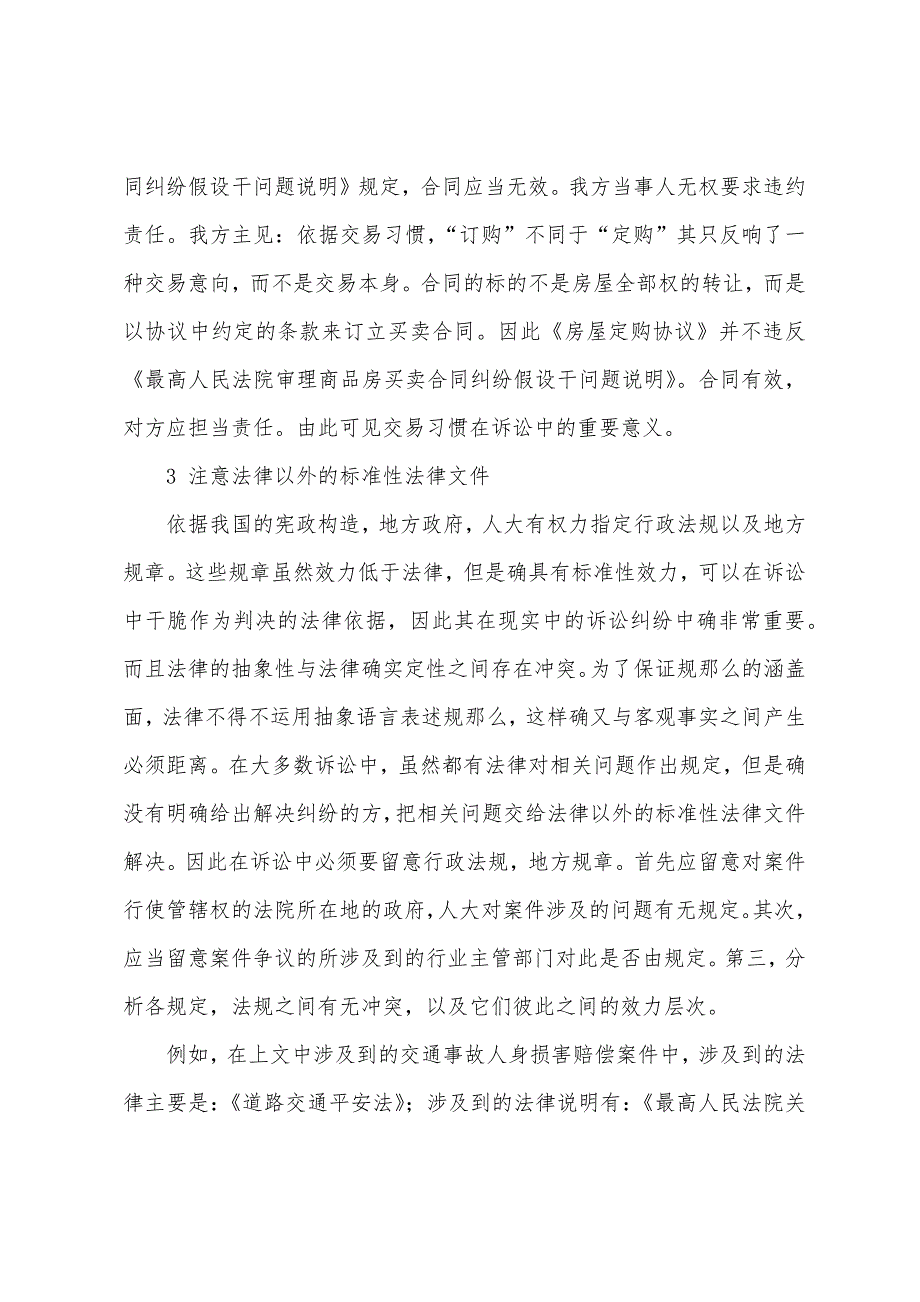 同纠纷假设干问题说明》规定，合同应当无效。我方当事人无权要求违约
责任。我方主见：依据交易习惯，“订购”不同于“定购”其只反响了一
种交易意向，而不是交易本身。合同的标的不是房屋全部权的转让，而是
以协议中约定的条款来订立买卖合同。因此《房屋定购协议》并不违反
《最高人民法院审理商品房买卖合同纠纷假设干问题说明》。合同有效，
对方应担当责任。由此可见交易习惯在诉讼中的重要意义。
3 注意法律以外的标准性法律文件
依据我国的宪政构造，地方政府，人大有权力指定行政法规以及地方
规章。这些规章虽然效力低于法律，但是确具有标准性效力，可以在诉讼
中干脆作为判决的法律依据，因此其在现实中的诉讼纠纷中确非常重要。
而且法律的抽象性与法律确实定性之间存在冲突。为了保证规那么的涵盖
面，法律不得不运用抽象语言表述规那么，这样确又与客观事实之间产生
必须距离。在大多数诉讼中，虽然都有法律对相关问题作出规定，但是确
没有明确给出解决纠纷的方，把相关问题交给法律以外的标准性法律文件
解决。因此在诉讼中必须要留意行政法规，地方规章。首先应留意对案件
行使管辖权的法院所在地的政府，人大对案件涉及的问题有无规定。其次，
应当留意案件争议的所涉及到的行业主管部门对此是否由规定。第三，分
析各规定，法规之间有无冲突，以及它们彼此之间的效力层次。
例如，在上文中涉及到的交通事故人身损害赔偿案件中，涉及到的法
律主要是：《道路交通平安法》；涉及到的法律说明有：《最高人民法院关